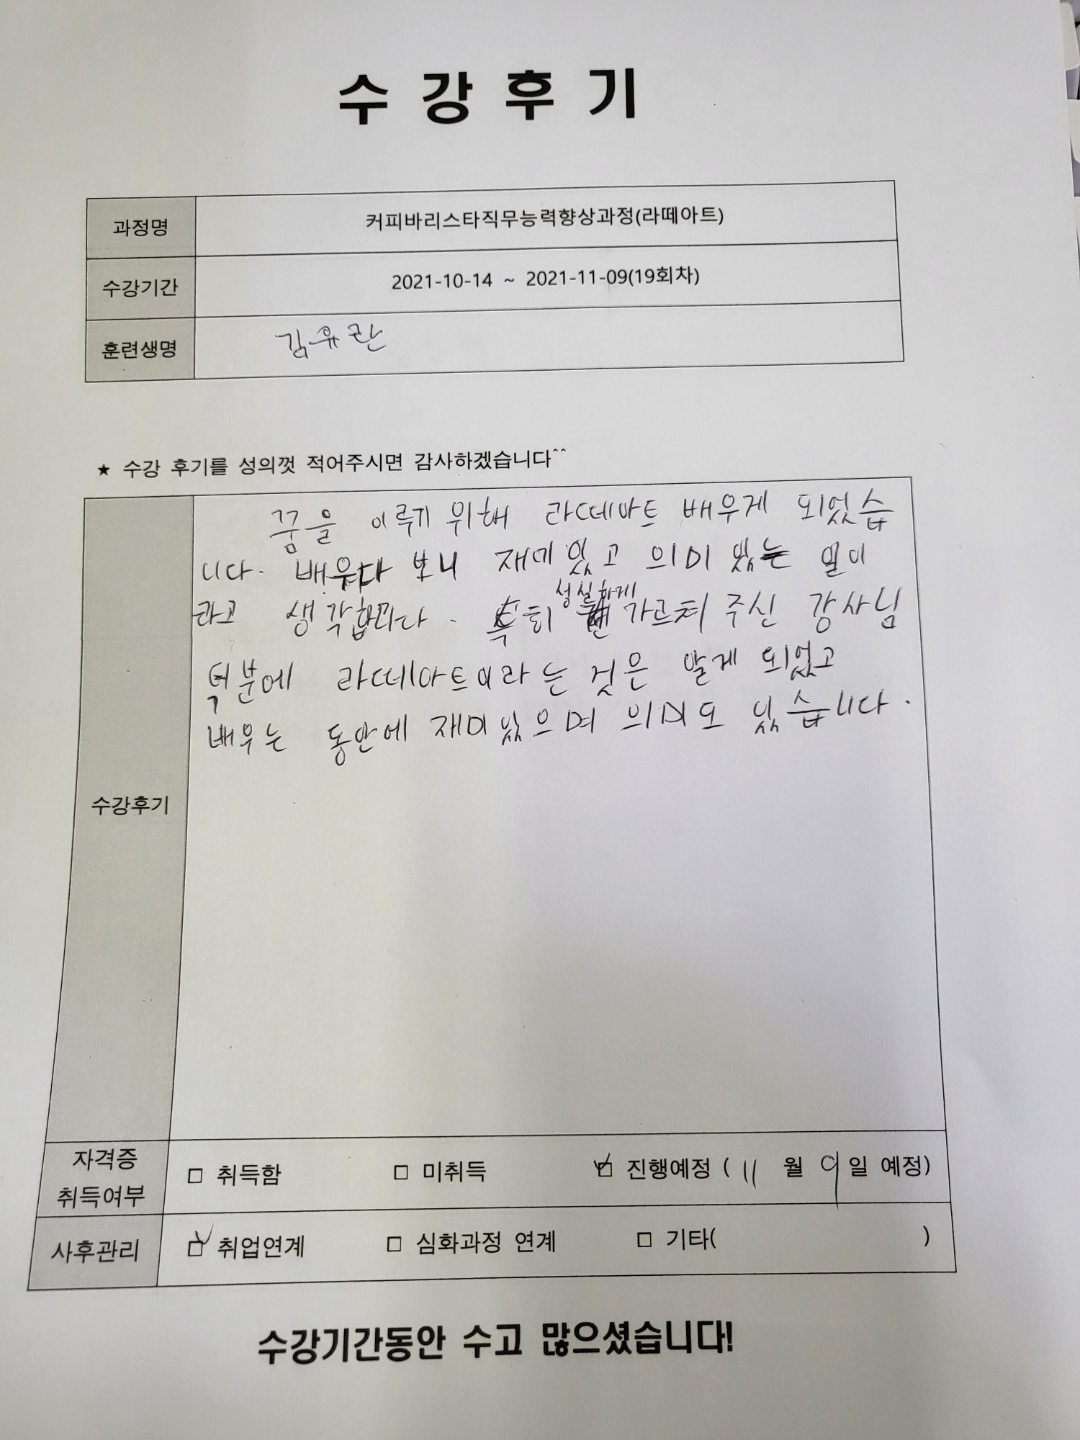 수강후기
과정명 커피바리스타직무능력향상과정(라떼아트)
수강기간 2021-10-14 ~ 2021-11-09(19회차)
훈련생명 김유란
★ 수강 후기를 성의껏 적어주시면 감사하겠습니다^^
꿈을 이루기 위해 라떼아트 배우게 되었습
니다. 배우다 보니 재미있고 의미 있는 일이
라고 생각합니다. 특히 성실하게 가르쳐 주신 강사님
덕분에 라떼아트이라는 것은 알게 되었고
배우는 동안에 재미있으며 의미도 있습니다.
수강후기
자격증
취득여부 □ 취득함 □ 미취득 ☑ 진행예정 ( 11 월 9일 예정)
사후관리 ☑ 취업연계 □ 심화과정 연계 □ 기타( )
수강기간동안 수고 많으셨습니다!